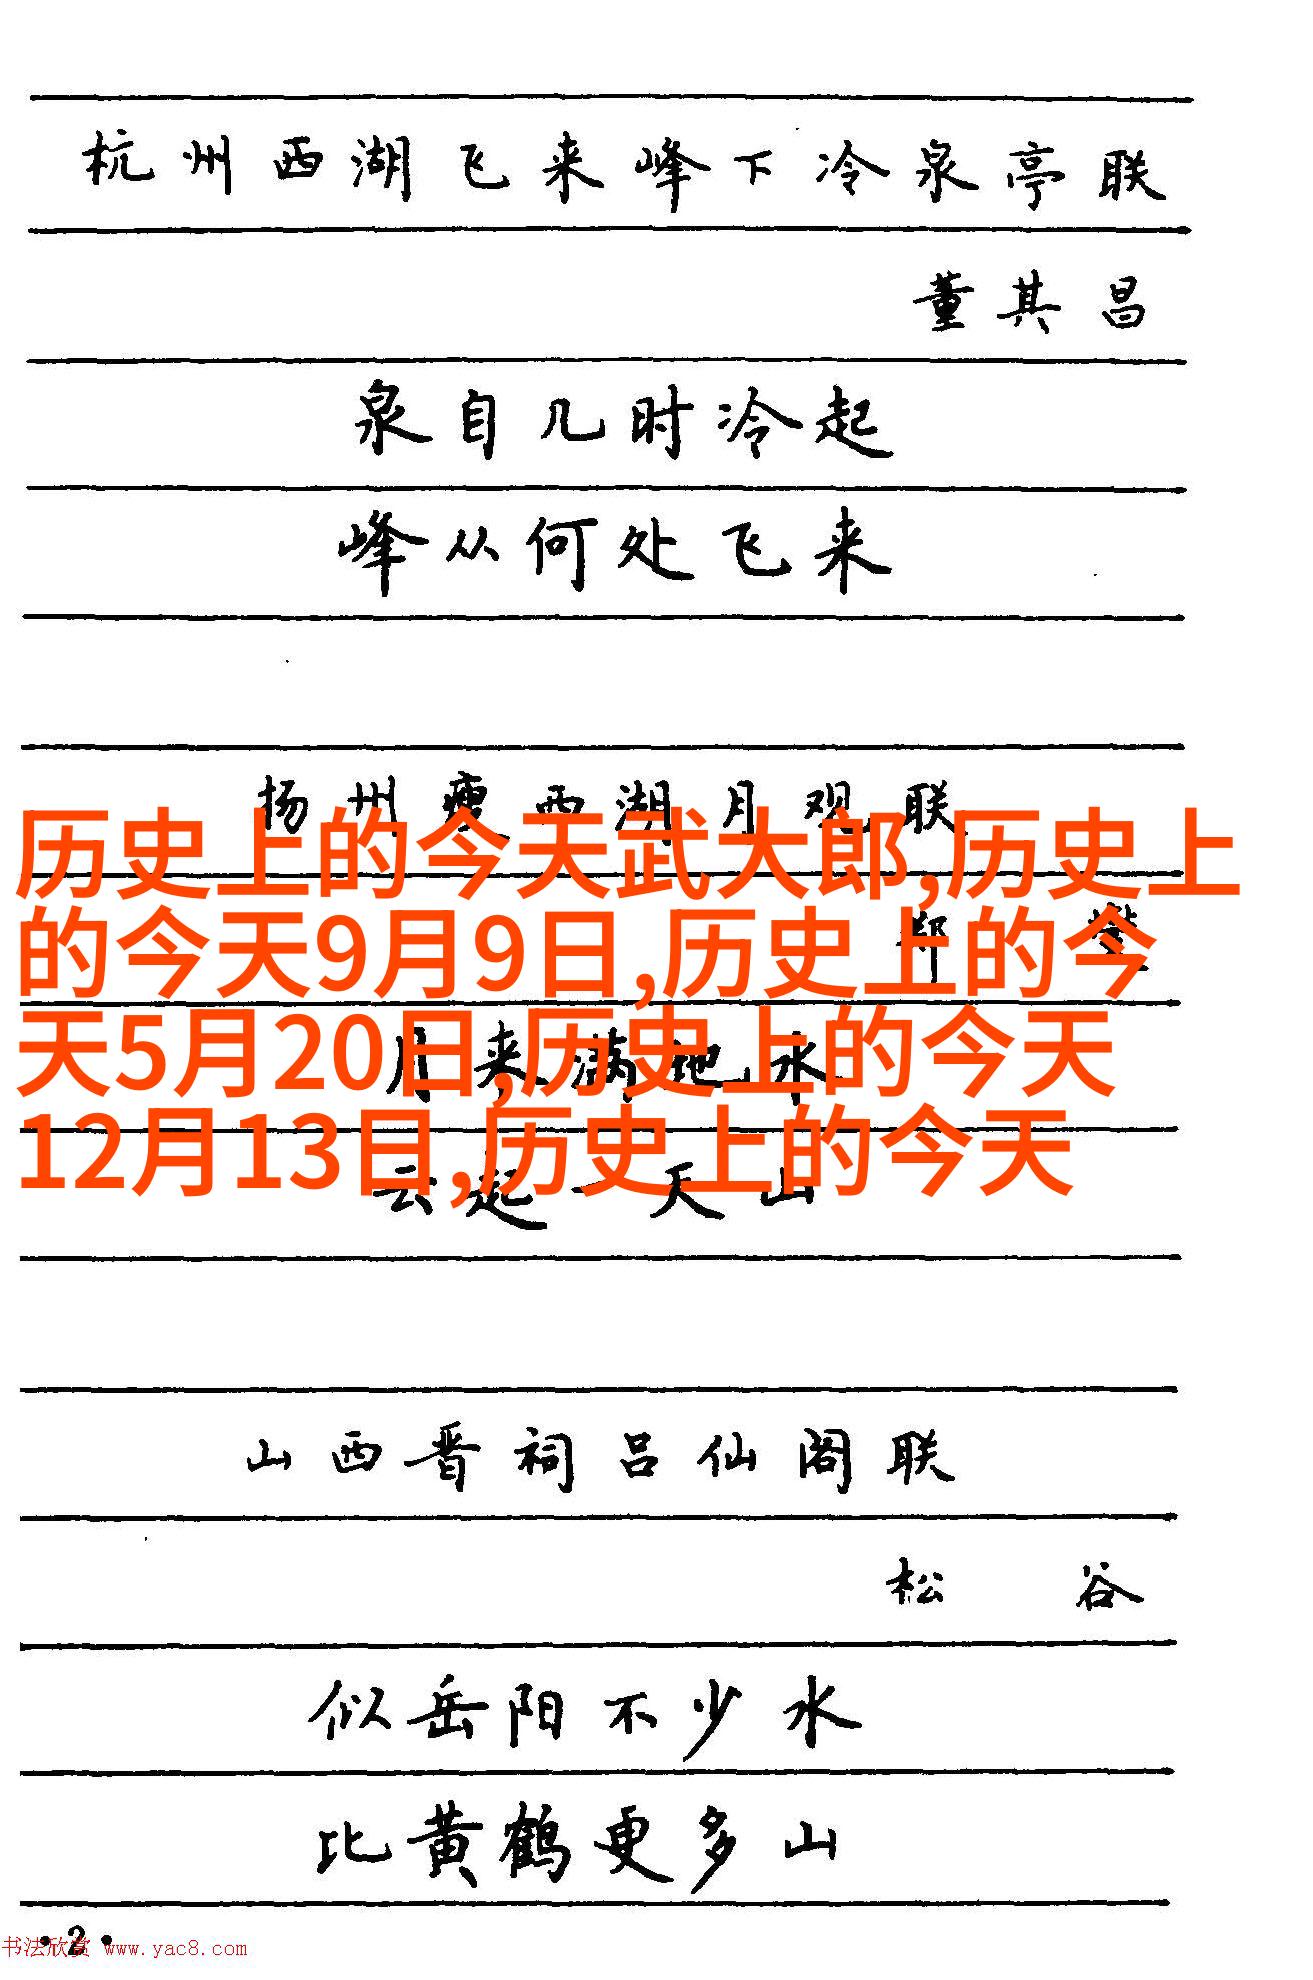 杭州西湖飞来峰下冷泉亭联
董其昌
泉自几时冷起
峰从何处飞来
扬州瘦西湖月观联
历史上的今天武大郎,历史上
郑
的今天9月9日,历史上的今
月来满地水
天5月20日,历史上的今天
云起一天山
12月13日,历史上的今天
山西晋祠吕仙阁联
松谷
似岳阳不少水
比黄鹤更多山
·2·
书法欣赏 www.yac8.com